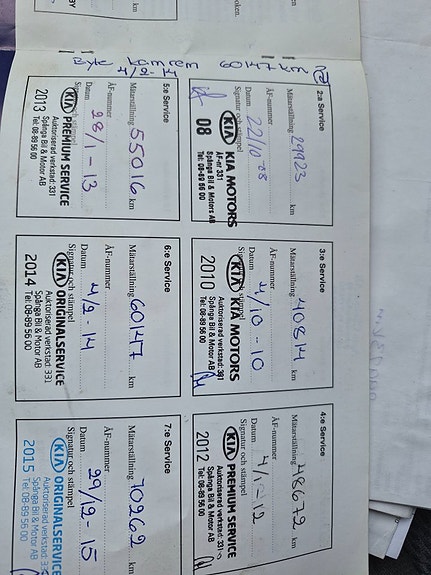 Byte kamrem 60147 km
4/2-14
2:e Service
Mätarställning 29923 km
ÅF-nummer
Datum 22/10-08
Signatur och stämpel
KIA MOTORS
ÅF-nr 331
08
Spånga Bil & Motors AB
Tel: 08-89 56 00
3:e Service
Mätarställning 40814 km
ÅF-nummer
Datum 4/10-10
Signatur och stämpel
KIA KIA MOTORS
2010
Auktoriserad verkstad: 331
Spånga Bil & Motor AB
Tel: 08-89 56 00
4:e Service
Mätarställning 48672 km
ÅF-nummer
Datum 4/1-12
Signatur och stämpel
KIA PREMIUM SERVICE
2012
Auktoriserad verkstad: 331
Spånga Bil & Motor AB
Tel: 08-89 56 00
5:e Service
Mätarställning 55016 km
ÅF-nummer
Datum 28/1-13
Signatur och stämpel
KIA PREMIUM SERVICE
2013
Auktoriserad verkstad: 331
Spånga Bil & Motor AB
Tel: 08-89 56 00
6:e Service
Mätarställning 60147 km
ÅF-nummer
Datum 4/2-14
Signatur och stämpel
KIA ORIGINALSERVICE
2014
Auktoriserad verkstad: 331
Spånga Bil & Motor AB
Tel: 08-89 56 00
7:e Service
Mätarställning 70262 km
ÅF-nummer
Datum 29/12-15
Signatur och stämpel
KIA ORIGINALSERVICE
2015
Auktoriserad verkstad: 33
Spånga Bil & Motor AB
Tel: 08-89 56 00